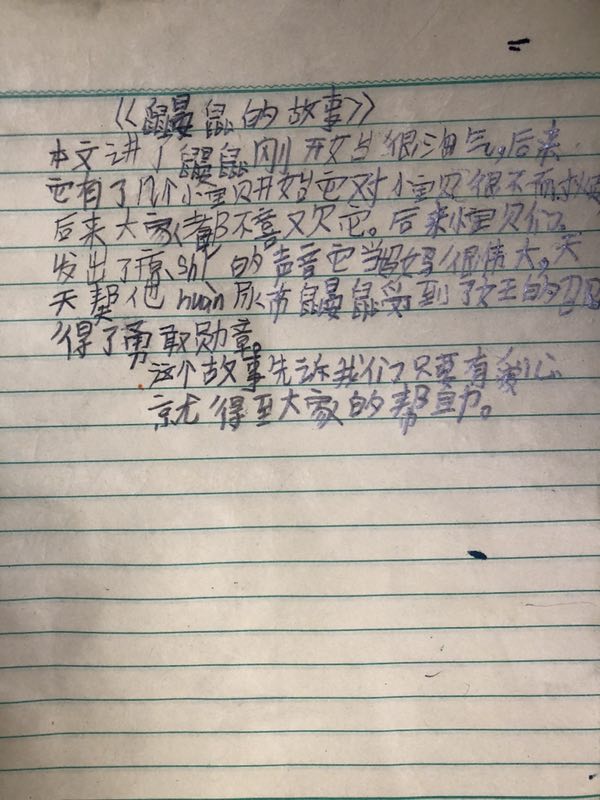 《鼹鼠的故事》
本文讲了鼹鼠刚开始很淘气,后来
它有了几个小宝贝开始它对小宝贝很不耐
后来大家都不喜欢它。后来小宝贝们
发出了 shī 的声音它当妈妈很伟大。天
天帮他 huàn 尿布鼹鼠受到了女王的
得了勇敢勋章。
这个故事告诉我们只要有爱心
就得到大家的帮助。